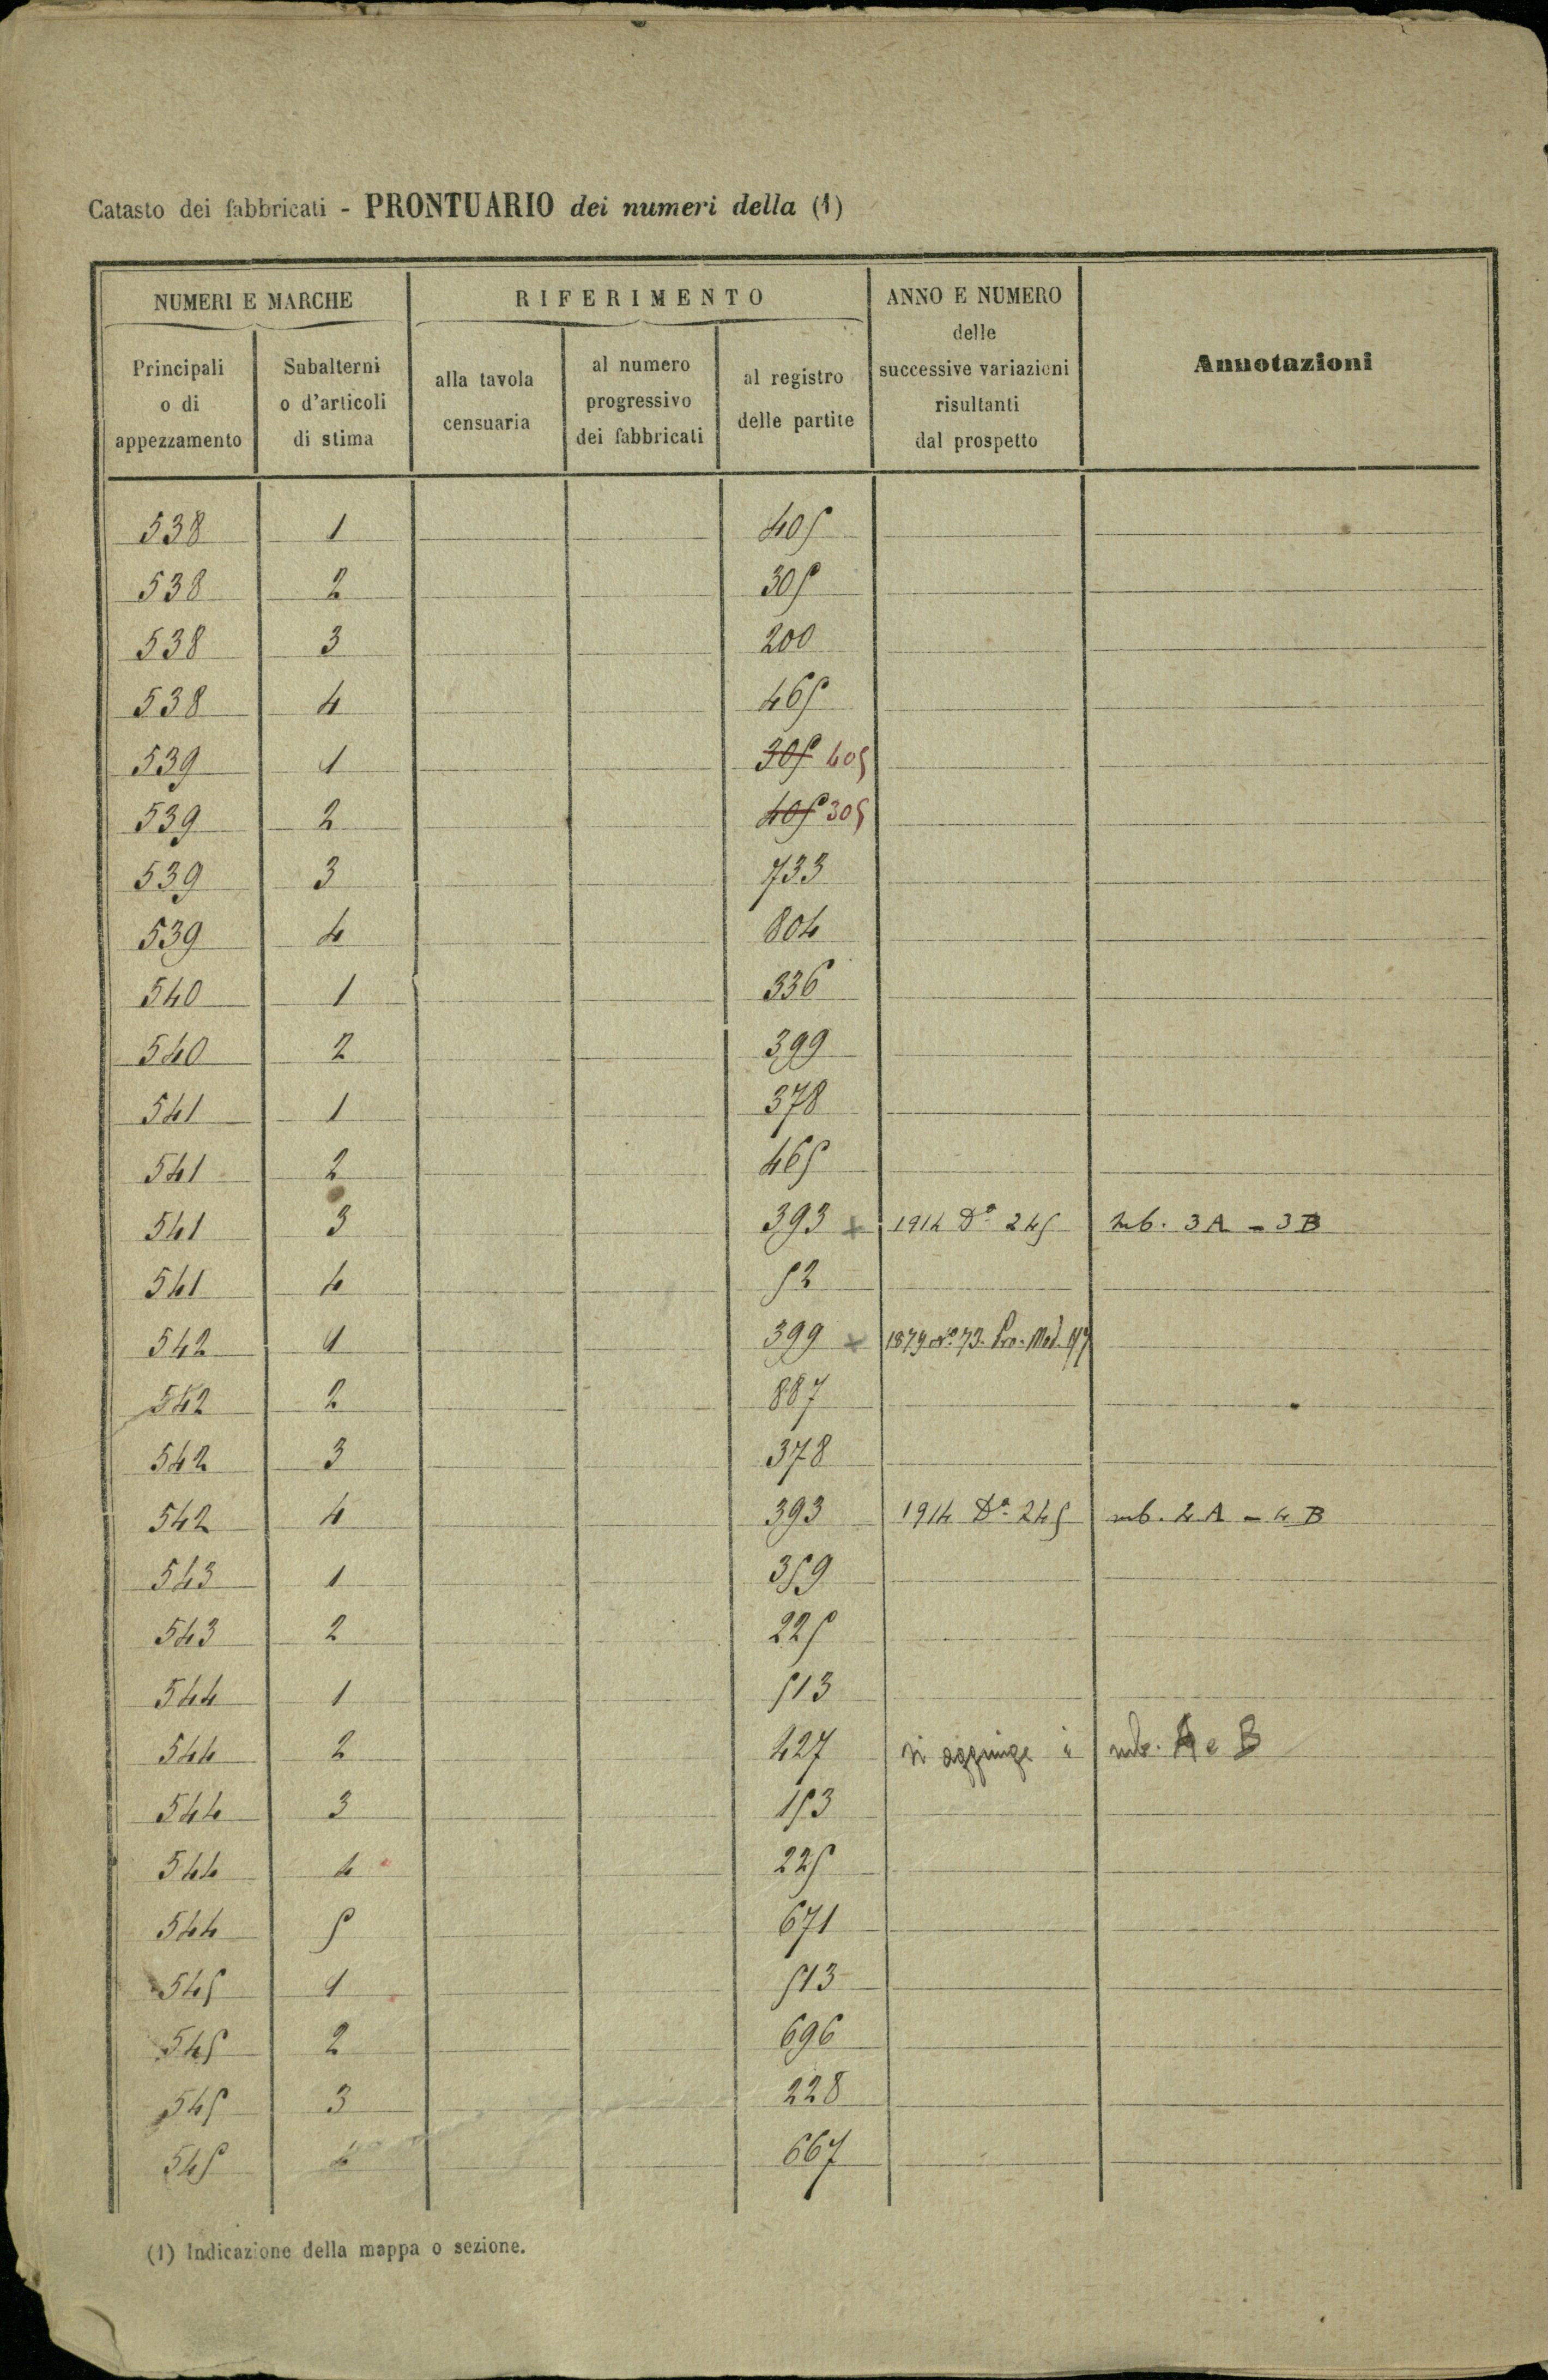 Catasto dei fabbricati - PRONTUARIO dei numeri della (1)
NUMERI E MARCHE
RIFERIMENTO
ANNO E NUMERO
delle
successive variazioni
risultanti
dal prospetto
Annotazioni
Principali
o di
appezzamento
Subalterni
o d'articoli
di stima
alla tavola
censuaria
al numero
progressivo
dei fabbricati
al registro
delle partite
538 1 405
538 2 305
538 3 200
538 4 465
539 1 305 405
539 2 405 305
539 3 733
539 4 804
540 1 336
540 2 399
541 1 378
541 2 465
541 3 393 x 1914 Da 245 sub. 3A - 3B
541 4 52
542 1 399 x 1879 No 73. Pro. Mod.
542 2 887
542 3 378
542 4 393 1914 Da 245 sub. 4A - 4B
543 1 359
543 2 225
544 1 513
544 2 427 si aggiunge i sub. A e B
544 3 153
544 4 225
544 5 671
545 1 513
545 2 696
545 3 228
545 4 667
(1) Indicazione della mappa o sezione.